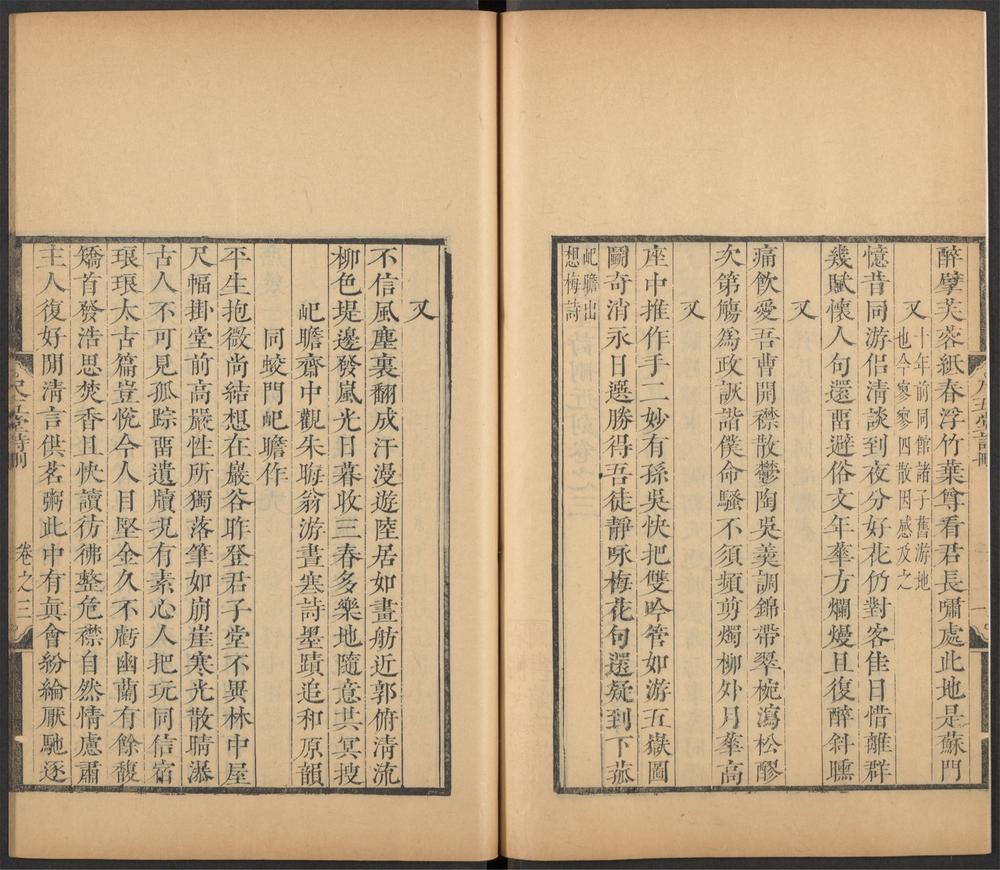 醉擘芙蓉紙春浮竹葉尊看君長嘯處此地是蘇門
又
十年前同館諸子舊游地
也今寥寥四散因感及之
憶昔同游侶清談到夜分好花仍對客佳日惜離群
幾賦懷人句還留避俗文年華方爛熳且復醉斜曛
又
痛飲愛吾曹開襟散鬱陶吳羹調錦帶翠椀瀉松醪
次第觴為政詼諧僕命騷不須頻剪燭柳外月華高
又
座中推作手二妙有孫吳快把雙吟管如游五嶽圖
鬬奇消永日選勝得吾徒靜咏梅花句還疑到下菰
屺瞻出
想梅詩
又
不信風塵裏翻成汗漫遊陸居如畫舫近郭俯清流
柳色堤邊發嵐光日暮收三春多樂地隨意共冥搜
屺瞻齋中觀朱晦翁游晝寒詩墨蹟追和原韻
同蛟門屺瞻作
平生抱微尚結想在巖谷昨登君子堂不異林中屋
尺幅掛堂前高嚴性所獨落筆如崩崖寒光散晴瀑
古人不可見孤踪留遺牘況有素心人把玩同信宿
琅琅太古篇豈悅今人目堅金久不虧幽蘭有餘馥
矯首發浩思焚香且快讀彷彿整危襟自然情慮肅
主人復好閒清言供茗粥此中有眞會紛綸厭馳逐
尺五堂詩刪
卷之三